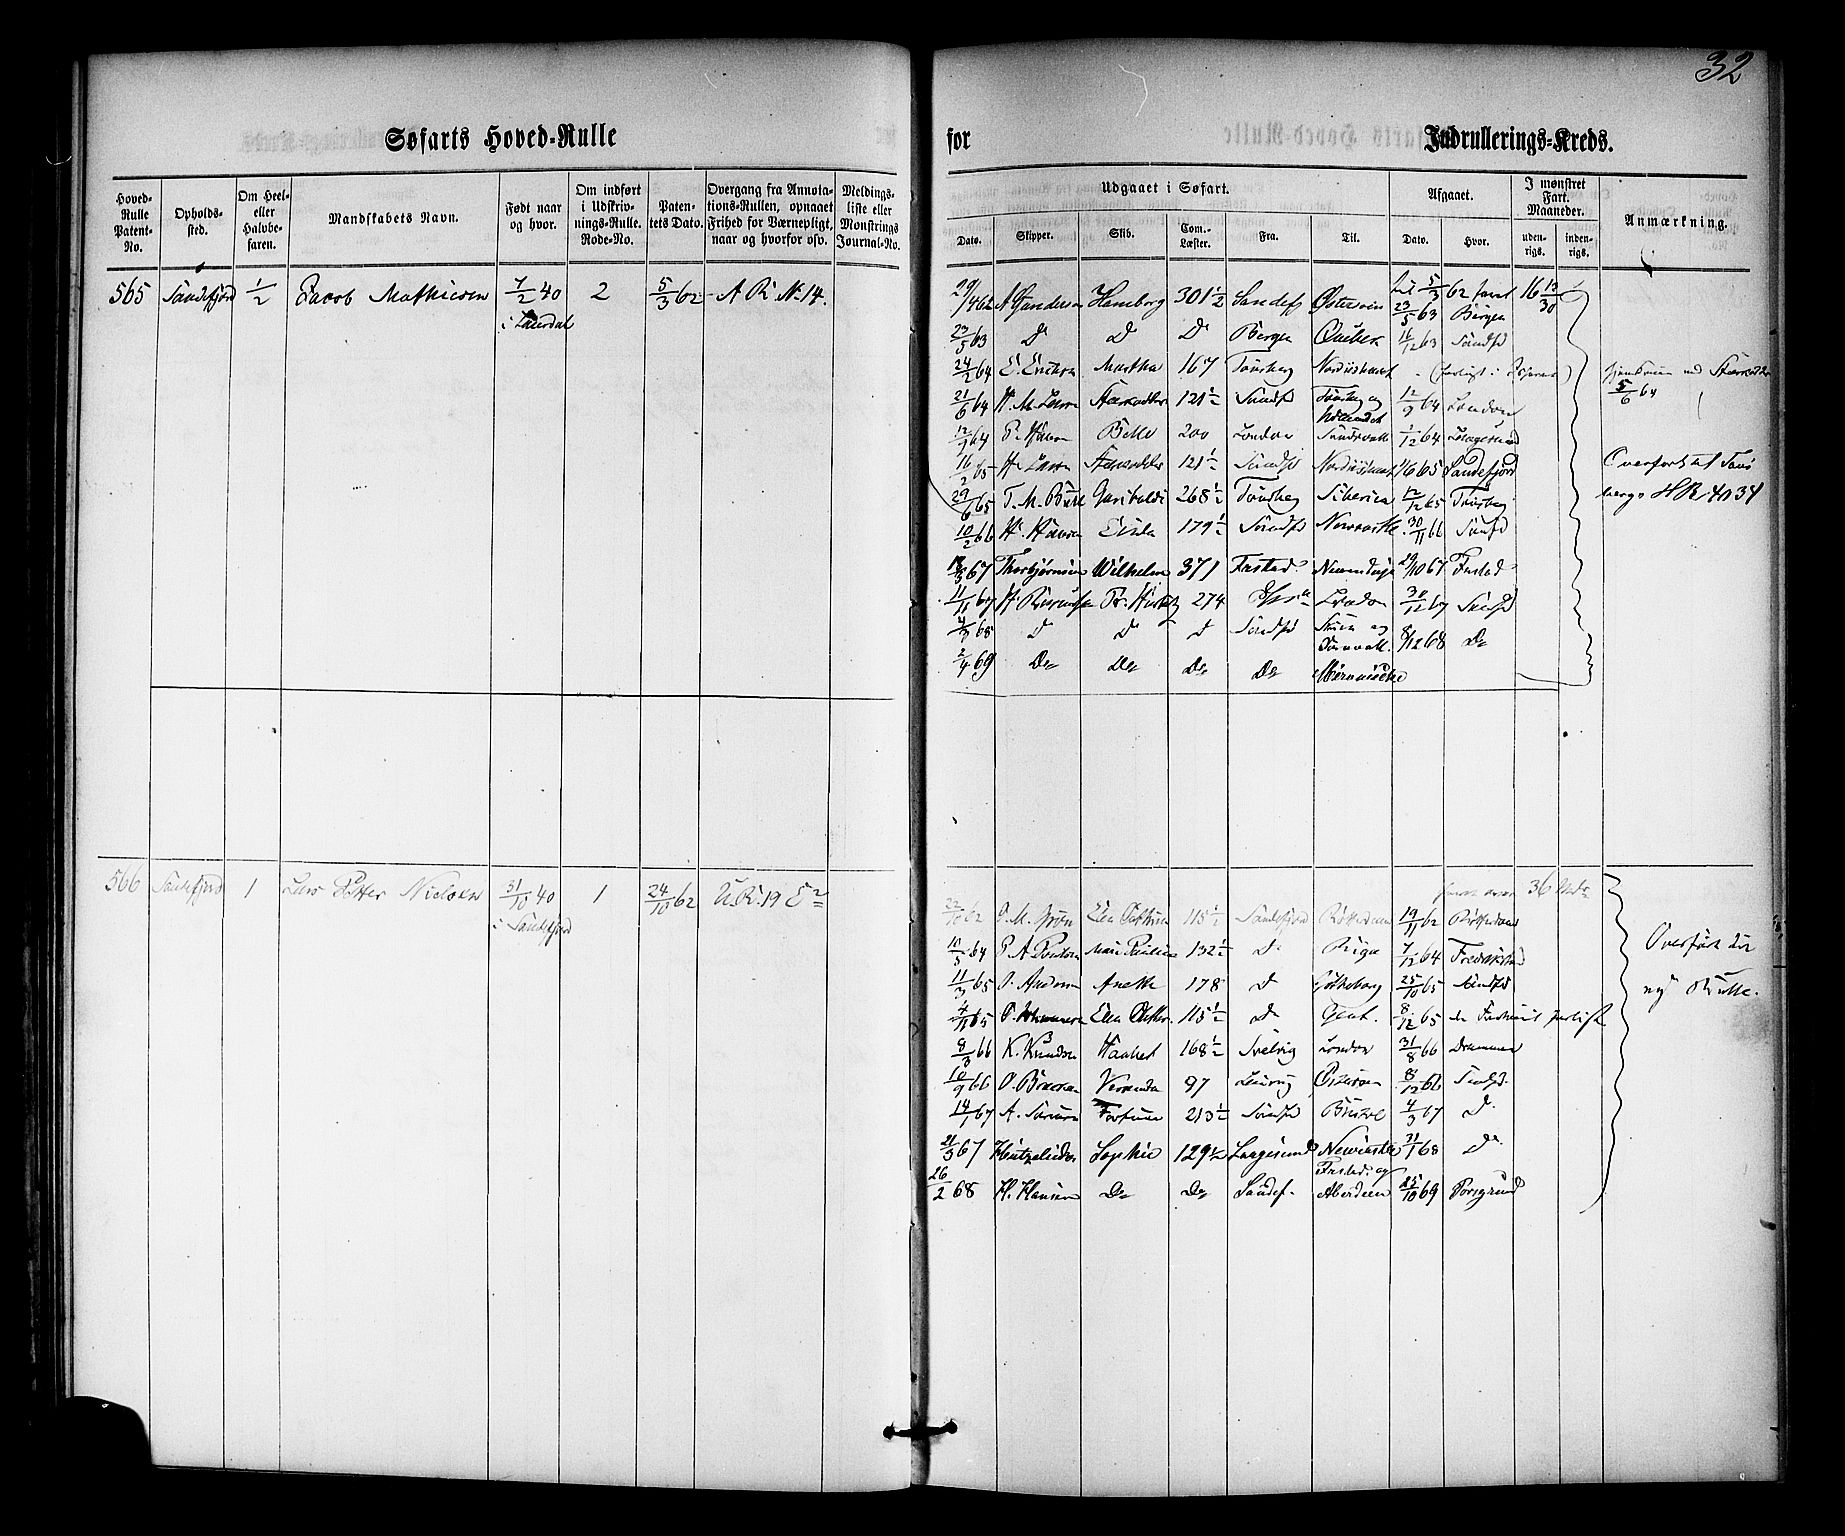 32
Søfarts Hoved-Rulle
for Indrullerings-Kreds.
Hoved-Rulle Patent-No.
Opholds-sted.
Om Heel- eller Halvbe-faren.
Mandskabets Navn.
Født naar og hvor.
Om indført i Udskriv-nings-Rulle. Rode-No.
Paten-tets Dato.
Overgang fra Annota-tions-Rullen, opnaaet Frihed for Værnepligt, naar og hvorfor osv.
Meldings-liste eller Mønstrings Journal-No.
Udgaaet i Søfart.
Afgaaet.
I mønstret Fart. Maaneder.
Anmærkning.
Dato. Skipper. Skib. Com.-Læster. Fra. Til. Dato. Hvor. uden-rigs. inden-rigs.
565 Sandefjord 1/2 Jacob Mathiesen 7/2 40 2 5/3 62 A R No 14.
i Laurdal
29/4 62 A Gundersen Hamborg 301 1/2 Sandefj Østersøen til 5/3 62 faret 16 13/30
23/5 63 Bergen
23/5 63 D D D Bergen Quebek 16/12 63 Sandfd
24/2 64 E. Ericksen Martha 167 Tønsberg Nordiishavet
5/6 64
21/6 64 H. M. Larsen Stærkodder 121 1/2 Sandfd Tønsberg og 12/9 64 London
12/9 64 P. Hansen Bella 200 London Sundsvall 1/12 64 Langesund
16/2 65 H. Larsen Stærkodder 121 1/2 Sandfd Nordiishavet 1/6 65 Sandefjord
Overført til Tøns
bergs HR 4034
29/6 65 T. M. Bull Garibaldi 268 1/2 Tønsberg Siberien 12/12 65 Tønsberg
10/2 66 H. Hansen 179 1/2 Sandfd Newcastle 30/11 66 Sandfd
67 Thorbjørnsen Wilhelm 371 Frstad. 29/10 67 Frstad
11/11 67 H Fr. Hertz 274 London 30/12 67 Sandfd
4/3 68 D D D Sandfd Skien og
8/12 68 Do
2/4 69 Do Do Do Do
566 Sandefjord 1 Lars Petter Nielsen 31/10 40 1 24/10 62 U. R. 19 E
i Sandefjord
faret over 36 Mdr
22/10 62 Elen Cathrine 115 1/2 Sandefjord Rotterdam 19/11 62 Rotterdam
10/5 64 P A Poulsen Marie Pauline 132 1/2 D Riga 7/12 64 Fredrikstad
Overført til
ny Rulle.
11/3 65 O. Andersen Anette 178 D Gøtheborg 25/10 65 Sandfd
4/11 65 115 1/2 Do Gent. 8/12 65
8/3 66 K. Knudsen Haabet 168 1/2 Svelvig London 31/8 66 Drammen
10/9 66 Veranda 97 Østersøen 8/12 66 Sandfd.
14/1 67 A. Sørensen Fortuna 213 1/2 Sandfd Bristol 4/3 67 D.
21/3 67 Sophie 129 1/2 Langesund Newcastle 31/1 68 Do
Frstad. og
26/2 68 H. Hansen Do Do Sandef. Aberdeen 25/10 69 Porsgrund